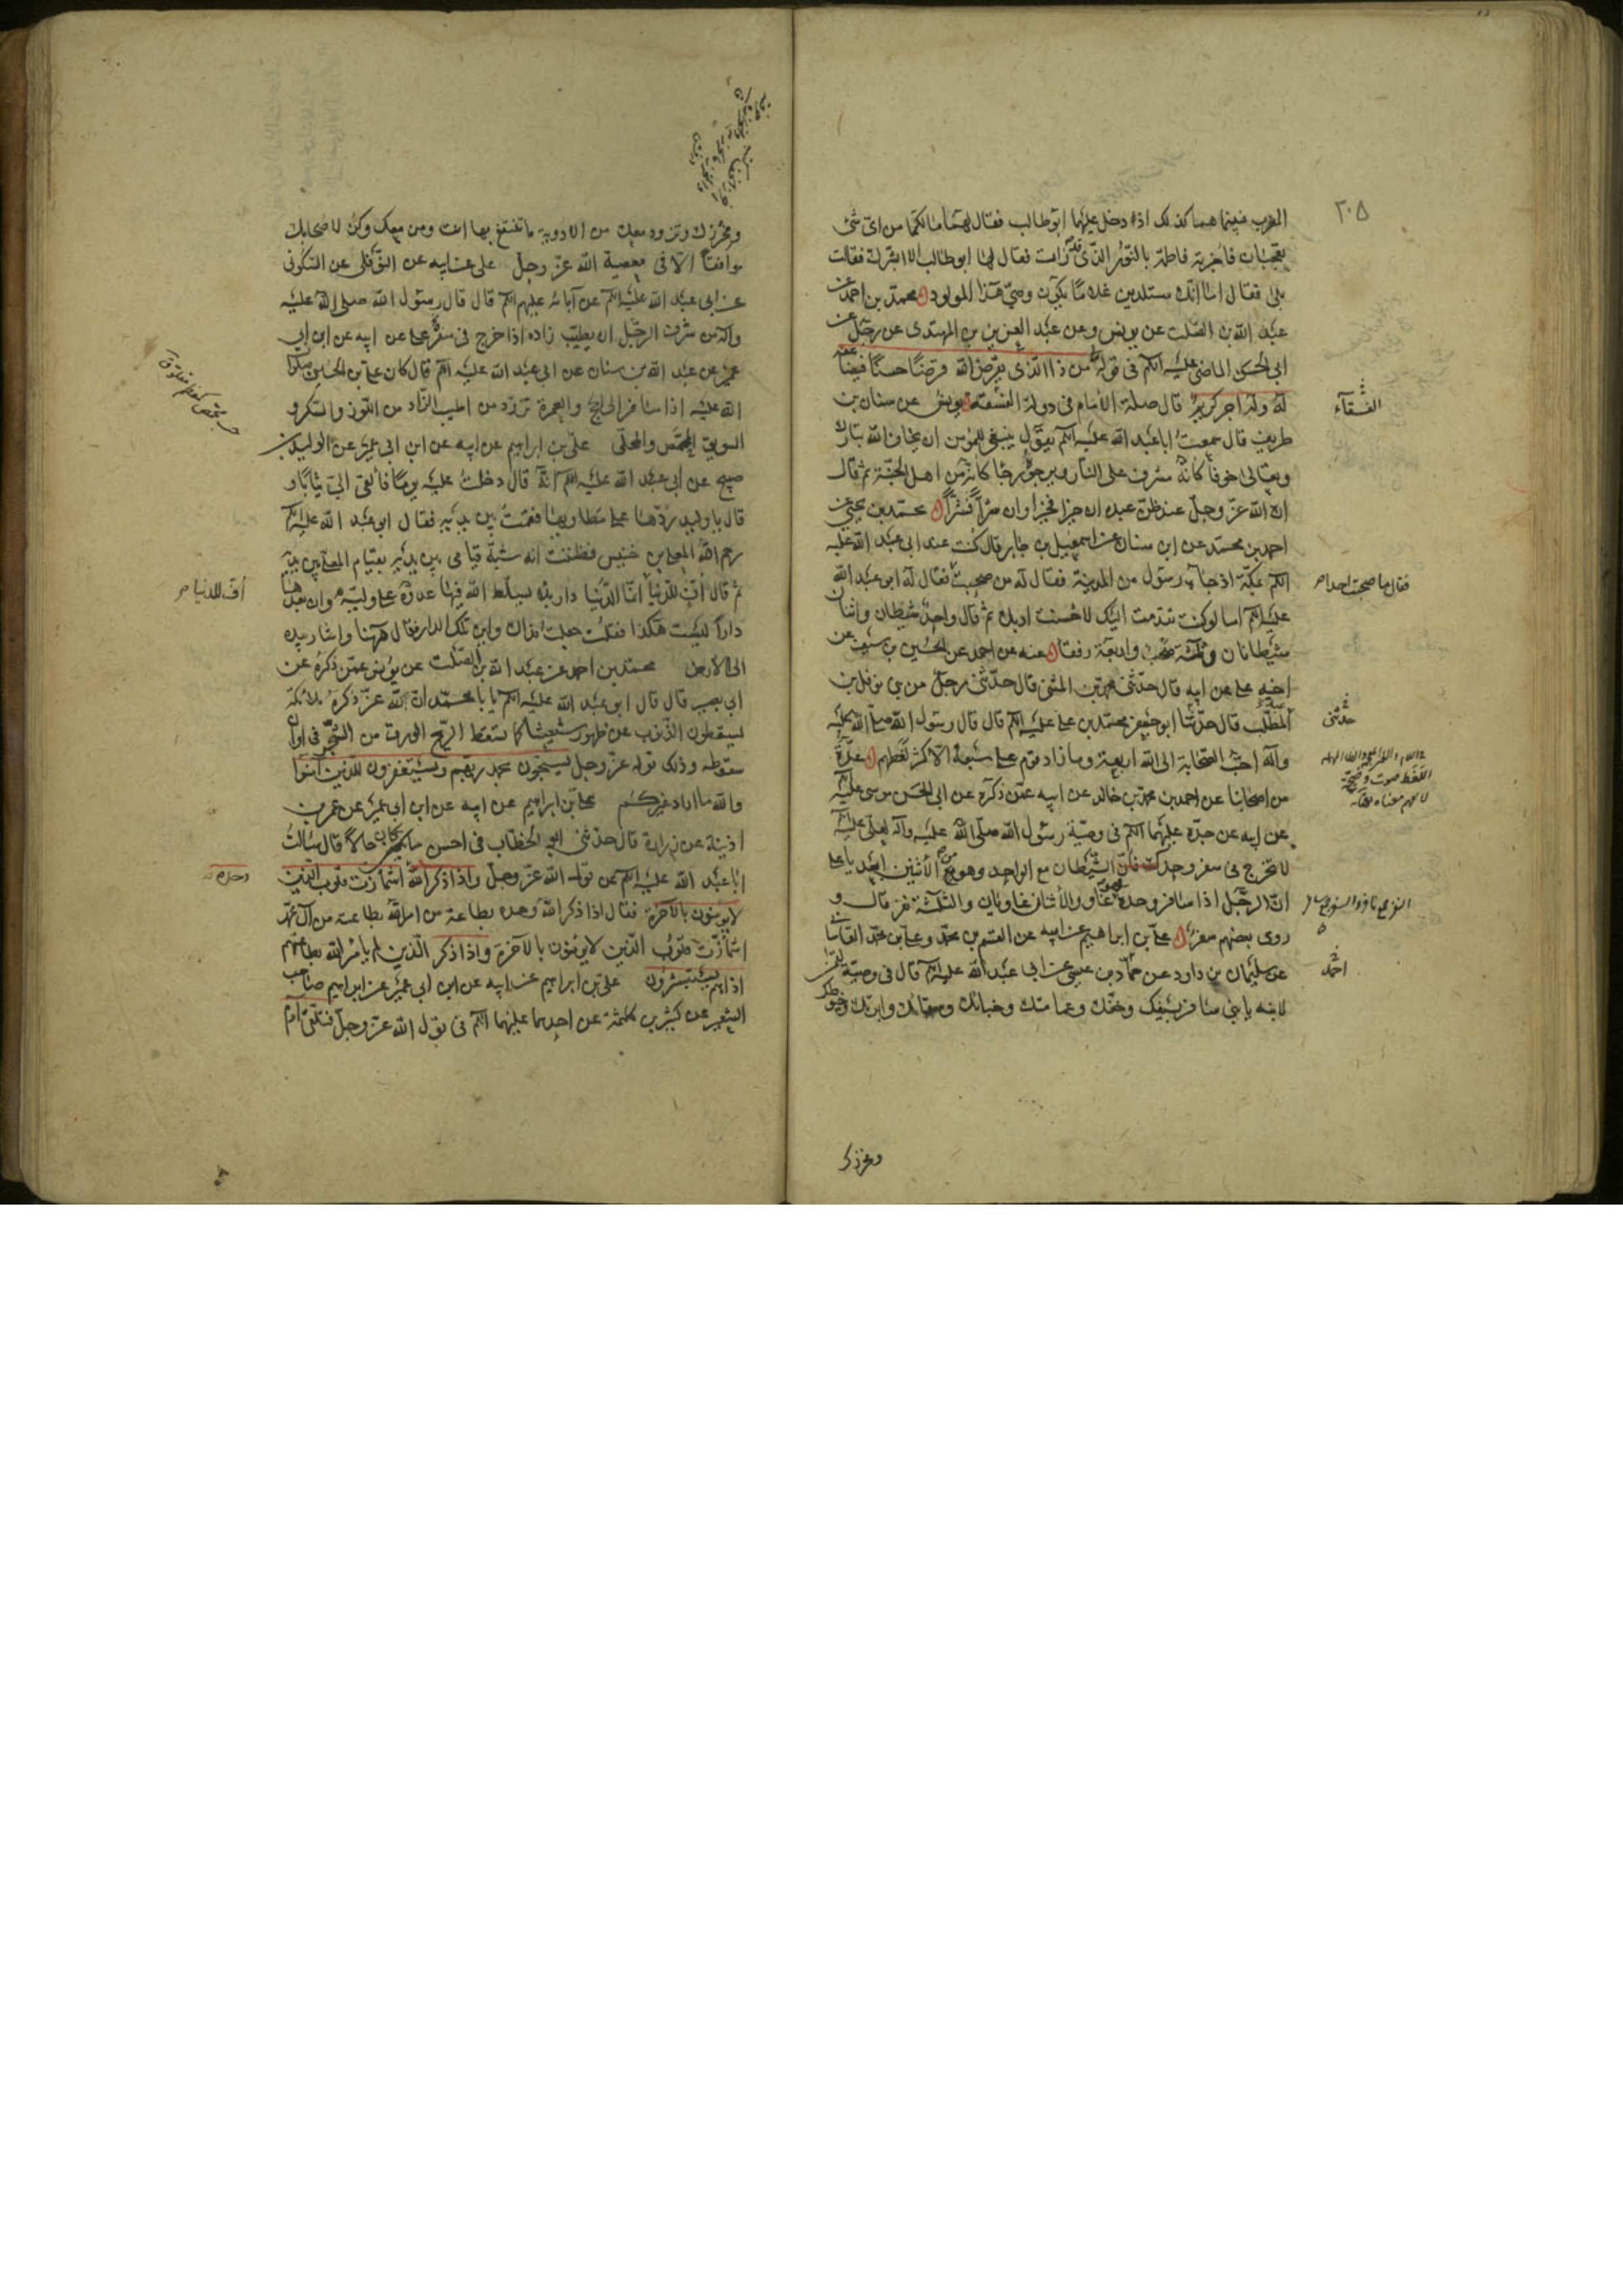 ٢٠٥
العرب فبينما هما كذلك اذ دخل عليهما ابوطالب فقال لهما ما لكما من اى شئ
تعجبان فاخبرته فاطمة بالنور الذى قد رات فقال لها ابوطالب الا ابشرك فقالت
بلى فقال اما انك ستلدين غلاما يكون وصى هذا المولود محمد بن احمد عن
عبد الله بن الصلت عن يونس وعن عبد العزيز بن المهتدى عن رجل عن
ابى الحسن الماضى عليه السلم فى قوله تعالى من ذا الذى يقرض الله قرضا حسنا فيضاعفه
له وله اجر كريم قال صلة الامام فى دولة الفسقة يونس عن سنان بن
طريف قال سمعت ابا عبد الله عليه السلم يقول ينبغى للمؤمن ان يخاف الله تبارك
وتعالى خوفا كانه مشرف على النار ويرجوه رجا كانه من اهل الجنة ثم قال
ان الله عز وجل عند ظن عبده ان خيرا فخيرا وان شرا فشرا محمد بن يحيى عن
احمد بن محمد عن ابن سنان عن اسمعيل بن جابر قال كنت عند ابى عبد الله عليه
السلم بمكة اذ جاءه رسول من المدينة فقال له من صحبت فقال له ابو عبد الله
عليه السلم اما لو كنت تقدمت اليك لاحسنت ادبك ثم قال واحد شيطان واثنان
شيطانان وثلثة صحب واربعة رفقاء عنه عن احمد عن الحسين بن سيف عن
اخيه على عن ابيه قال حدثنى محمد بن المثنى قال حدثنى رجل من بنى نوفل بن
عبد المطلب قال حدثنا ابو جعفر محمد بن على عليه السلم قال قال رسول الله صلى الله عليه
وآله احب الصحابة الى الله اربعة وما زاد قوم على سبعة الا كثر لغطهم عدة
من اصحابنا عن احمد بن محمد بن خالد عن ابيه عمن ذكره عن ابى الحسن موسى عليه السلم
عن ابيه عن جده عليهما السلم فى وصية رسول الله صلى الله عليه وآله لعلى عليه السلم
لا تخرج فى سفر وحدك فان الشيطان مع الواحد وهو من الاثنين ابعد يا على
ان الرجل اذا سافر وحده فهو غاو والاثنان غاويان والثلثة نفر قال و
روى بعضهم سفر على بن ابراهيم عن ابيه عن القسم بن محمد وعلى بن محمد القاسانى
عن سليمان بن داود عن حماد بن عيسى عن ابى عبد الله عليه السلم قال فى وصية لقمن
لابنه يا بنى سافر بسيفك وخفك وعمامتك وخبائك وسقائك وابرتك وخيوطك
الفسقآء
فقال ما صحبت احدا
حدثنى
اللغط صوت وضجة
لا يفهم معناه
احمد
ومخرزك
ومخرزك وتزود معك من الادوية ما تنتفع بها انت ومن معك وكن لاصحابك
موافقا الا فى معصية الله عز وجل على عن ابيه عن النوفلى عن السكونى
عن ابى عبد الله عليه السلم عن آبائه عليهم السلم قال قال رسول الله صلى الله عليه
وآله من شرف الرجل ان يطيب زاده اذا خرج فى سفر على عن ابيه عن ابن ابى
عمير عن عبد الله بن سنان عن ابى عبد الله عليه السلم قال كان على بن الحسين صلوات
الله عليه اذا سافر الى الحج والعمرة تزود من اطيب الزاد من اللوز والسكر و
السويق المحمص والمحلى على بن ابراهيم عن ابيه عن ابن ابى عمير عن الوليد بن
صبيح عن ابى عبد الله عليه السلم انه قال دخلت عليه يوما فالقى الى ثيابا و
قال يا وليد ردها على مطاويها فقمت بين يديه فقال ابو عبد الله عليه السلم
رحم الله المعلى بن خنيس فظننت انه شبه قيامى بين يديه بقيام المعلى بين يديه
ثم قال اف للدنيا انما الدنيا دار بلاء يسلط الله فيها عدوه على وليه وان بعدها
دارا ليست هكذا فقلت جعلت فداك واين تلك الدار فقال ههنا واشار بيده
الى الارض محمد بن احمد عن عبد الله بن الصلت عن يونس عمن ذكره عن
ابى بصير قال قال ابو عبد الله عليه السلم يا با محمد ان لله عز ذكره ملائكة
يسقطون الذنوب عن ظهور شيعتنا كما تسقط الريح الورق من الشجر فى اوان
سقوطه وذلك قوله عز وجل يسبحون بحمد ربهم ويستغفرون للذين آمنوا
والله ما اراد غيركم على بن ابراهيم عن ابيه عن ابن ابى عمير عن عمر بن
اذينة عن زرارة قال حدثنى ابو الخطاب فى احسن ما يكون حالا قال سالت
ابا عبد الله عليه السلم عن قول الله عز وجل واذا ذكر الله اشمأزت قلوب الذين
لا يؤمنون بالآخرة فقال اذا ذكر الله وحده بطاعة من امر الله بطاعته من آل محمد
اشمأزت قلوب الذين لا يؤمنون بالآخرة واذا ذكر الذين لم يأمر الله بطاعتهم
اذا هم يستبشرون على بن ابراهيم عن ابيه عن ابن ابى عمير عن ابراهيم صاحب
الشعير عن كثير بن كلثمة عن احدهما عليهما السلم فى قول الله عز وجل فتلقى آدم
اف للدنيا
وحده